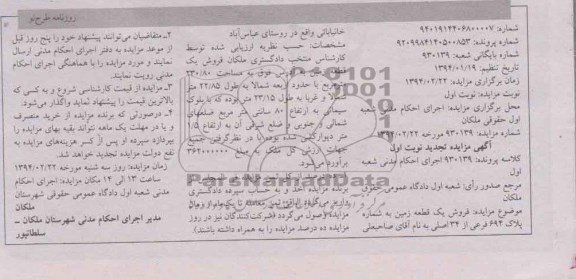 روزنامه طرح‌نو
شماره: ۹۴۰۱۹۱۴۴۰۶۸۰۰۰۰۷
شماره پرونده: ۹۲۰۹۹۸۴۱۴۰۵۰۰۸۵۳
شماره بایگانی شعبه: ۹۳۰۱۳۹
تاریخ تنظیم: ۱۳۹۴/۰۱/۱۹
زمان برگزاری مزایده: ۱۳۹۴/۰۲/۲۲
نوبت مزایده: نوبت اول
محل برگزاری مزایده: اجرای احکام مدنی شعبه
اول حقوقی ملکان
شماره مزایده: ۹۳۰۱۳۹ مورخه ۱۳۹۴/۰۲/۲۲
آگهی مزایده تجدید نوبت اول
کلاسه پرونده: ۹۳۰۱۳۹ اجرای احکام مدنی شعبه
اول
مرجع صدور رأی: شعبه اول دادگاه عمومی حقوقی
ملکان
موضوع مزایده: فروش یک قطعه زمین به شماره
پلاک ۶۹۴ فرعی از ۳۴ اصلی به نام آقای صاحبعلی
خانابائی واقع در روستای عباس‌آباد
مشخصات: حسب نظریه ارزیابی شده توسط
کارشناس منتخب دادگستری ملکان فروش یک
قطعه زمین به آدرس فوق به مساحت ۲۳۰/۸۰
مترمربع با حدود اربعه شمالا به طول ۲۲/۸۵ متر
شمالا و غربا به طول ۲۳/۱۵ متر بوده که با بلوک
سیمانی به ارتفاع ۸۰ سانتی متر مربع ضلعهای
شمالی و جنوبی و ضلع شرقی آن به ارتفاع ۱/۵
متر دیوارکشی شده بوده و با در نظر گرفتن جمیع
جهات ارزش کل ملک به مبلغ ۳۶۲۰۰۰۰۰۰
برآورد می‌شود.
برنده مزایده اخذ و به حساب سپرده دادگستری
مزایده وصول می‌گردد و شرکت‌کنندگان نیز در روز
مزایده ده درصد مزایده را به همراه داشته باشند).
۲ـ متقاضیان می‌توانند پیشنهاد خود را پنج روز قبل
از موعد مزایده به دفتر اجرای احکام مدنی ارسال
نمایند و مورد مزایده را با هماهنگی اجرای احکام
مدنی رویت نمایند.
۳ـ مزایده از قیمت کارشناسی شروع و به کسی که
بالاترین قیمت را پیشنهاد نماید واگذار می‌شود.
۴ـ درصورتی که برنده مزایده از خرید منصرف
و یا در مهلت یک ماهه نتواند بقیه بهای مزایده را
بپردازد سپرده او پس از کسر هزینه‌های مزایده به
نفع دولت مزایده تجدید خواهد شد.
زمان مزایده: روز سه شنبه مورخه ۱۳۹۴/۰۲/۲۲
ساعت ۱۳ الی ۱۴ مکان مزایده: اجرای احکام
مدنی شعبه اول دادگاه عمومی حقوقی شهرستان
ملکان
مدیر اجرای احکام مدنی شهرستان ملکان ـ
سلطانپور
ParsNamadData